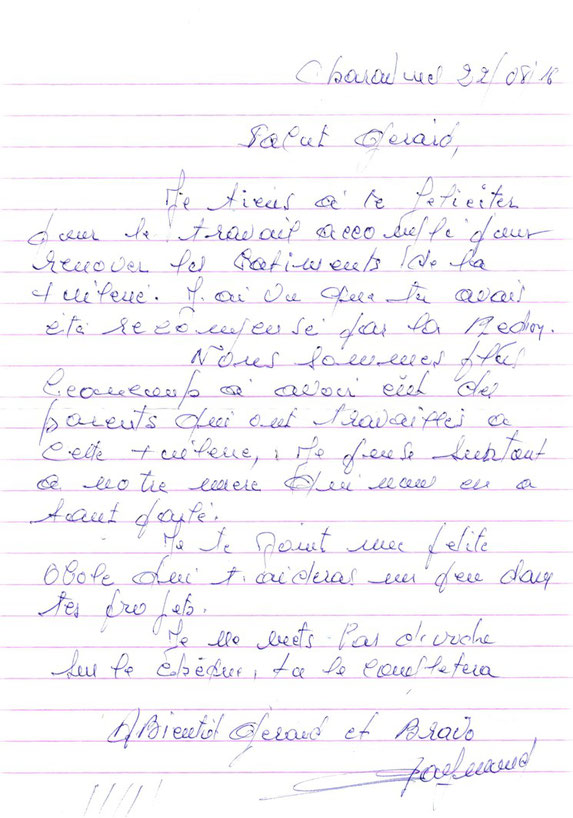 22/08/16
Salut Gérard,
Je tiens à te féliciter
pour le travail accompli pour
renover les Batiments de la
J'ai vu que tu avais
été recompensé par la
Nous sommes plus
beaucoup à avoir eût des
parents qui ont travaillés a
cette Je pense surtout
a notre mère Qui nous en a
tant parlé.
Je te Joint une petite
Obole qui t'aideras un peu dans
tes projets.
Je ne mets Pas d'ordre
sur le chèque, tu le completera
A Bientôt Gérard et Bravo